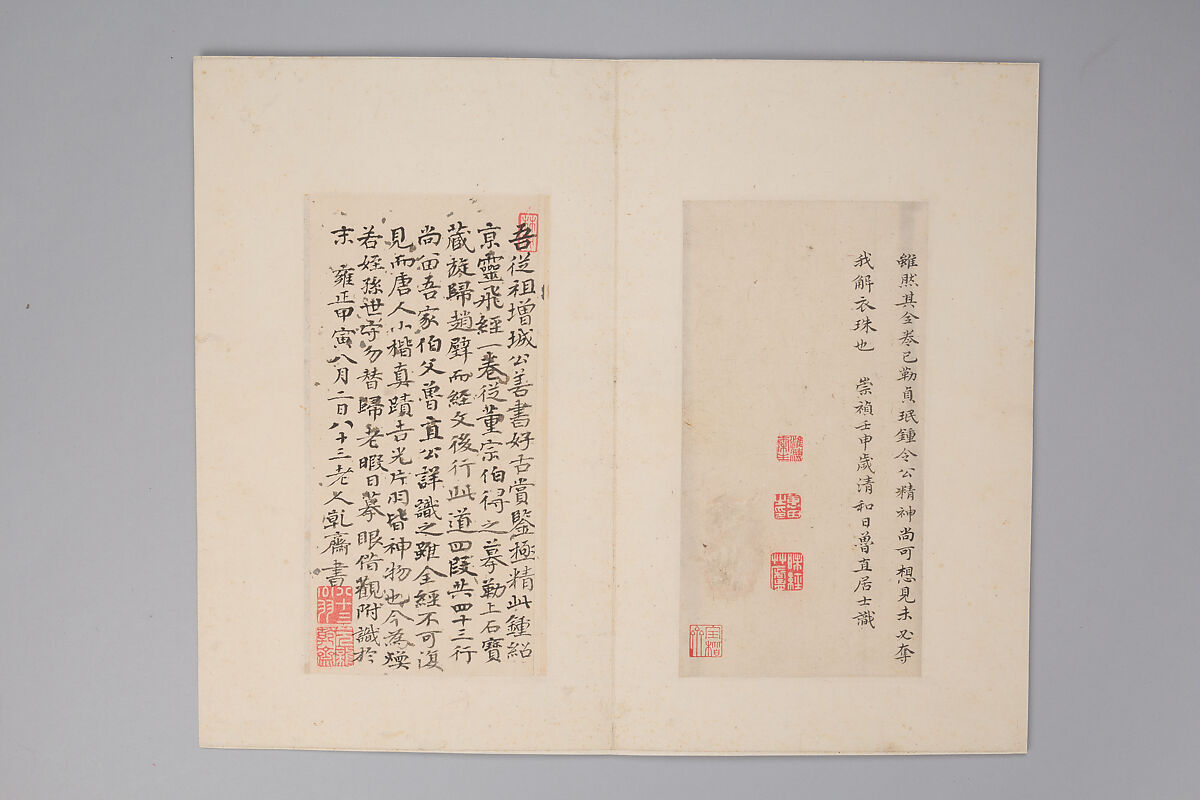 雖然其全卷已勒貞珉鍾令公精神尚可想見未必奪
我解衣珠也 崇禎壬申歲清和日魯直居士識
吾從祖增城公善書好古賞鑒極精此鍾紹
京靈飛經一卷從董宗伯得之摹勒上石寶
藏旋歸趙璧而經文後行此道四段共四十三行
尚留吾家伯父魯直公詳識之雖全經不可復
見而唐人小楷真蹟吉光片羽皆神物也今為煐
若姪孫世守勿替歸老暇日摹眼借觀附識於
末 雍正甲寅八月二日八十三老人乾齋書